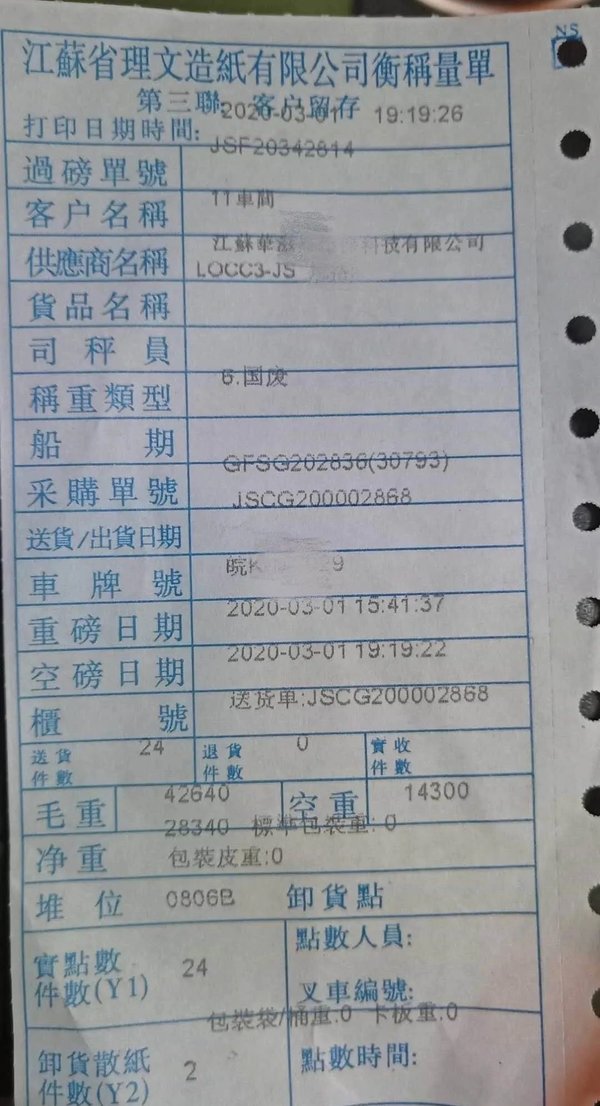 NS
江蘇省理文造紙有限公司衡稱量單
第三聯: 客户留存
打印日期時間: 2020-03-01 19:19:26
過磅單號 JSF20342814
客户名稱 11車間
供應商名稱 江蘇華 科技有限公司
貨品名稱 LOCC3-JS
司秤員
稱重類型 6.国废
船期
采購單號 GFSG202836(30793)
送貨/出貨日期 JSCG200002868
車牌號 皖K 9
重磅日期 2020-03-01 15:41:37
空磅日期 2020-03-01 19:19:22
櫃號 送货单:JSCG200002868
送貨件數 24 退貨件數 0 實收件數
毛重 42640 空重 14300
28340 標準包裝重: 0
净重 包裝皮重:0
堆位 0806B 卸貨點
實點數件數(Y1) 24 點數人員:
叉車編號:
包裝袋/桶重:0 卡板重:0
卸貨散紙件數(Y2) 2 點數時間: